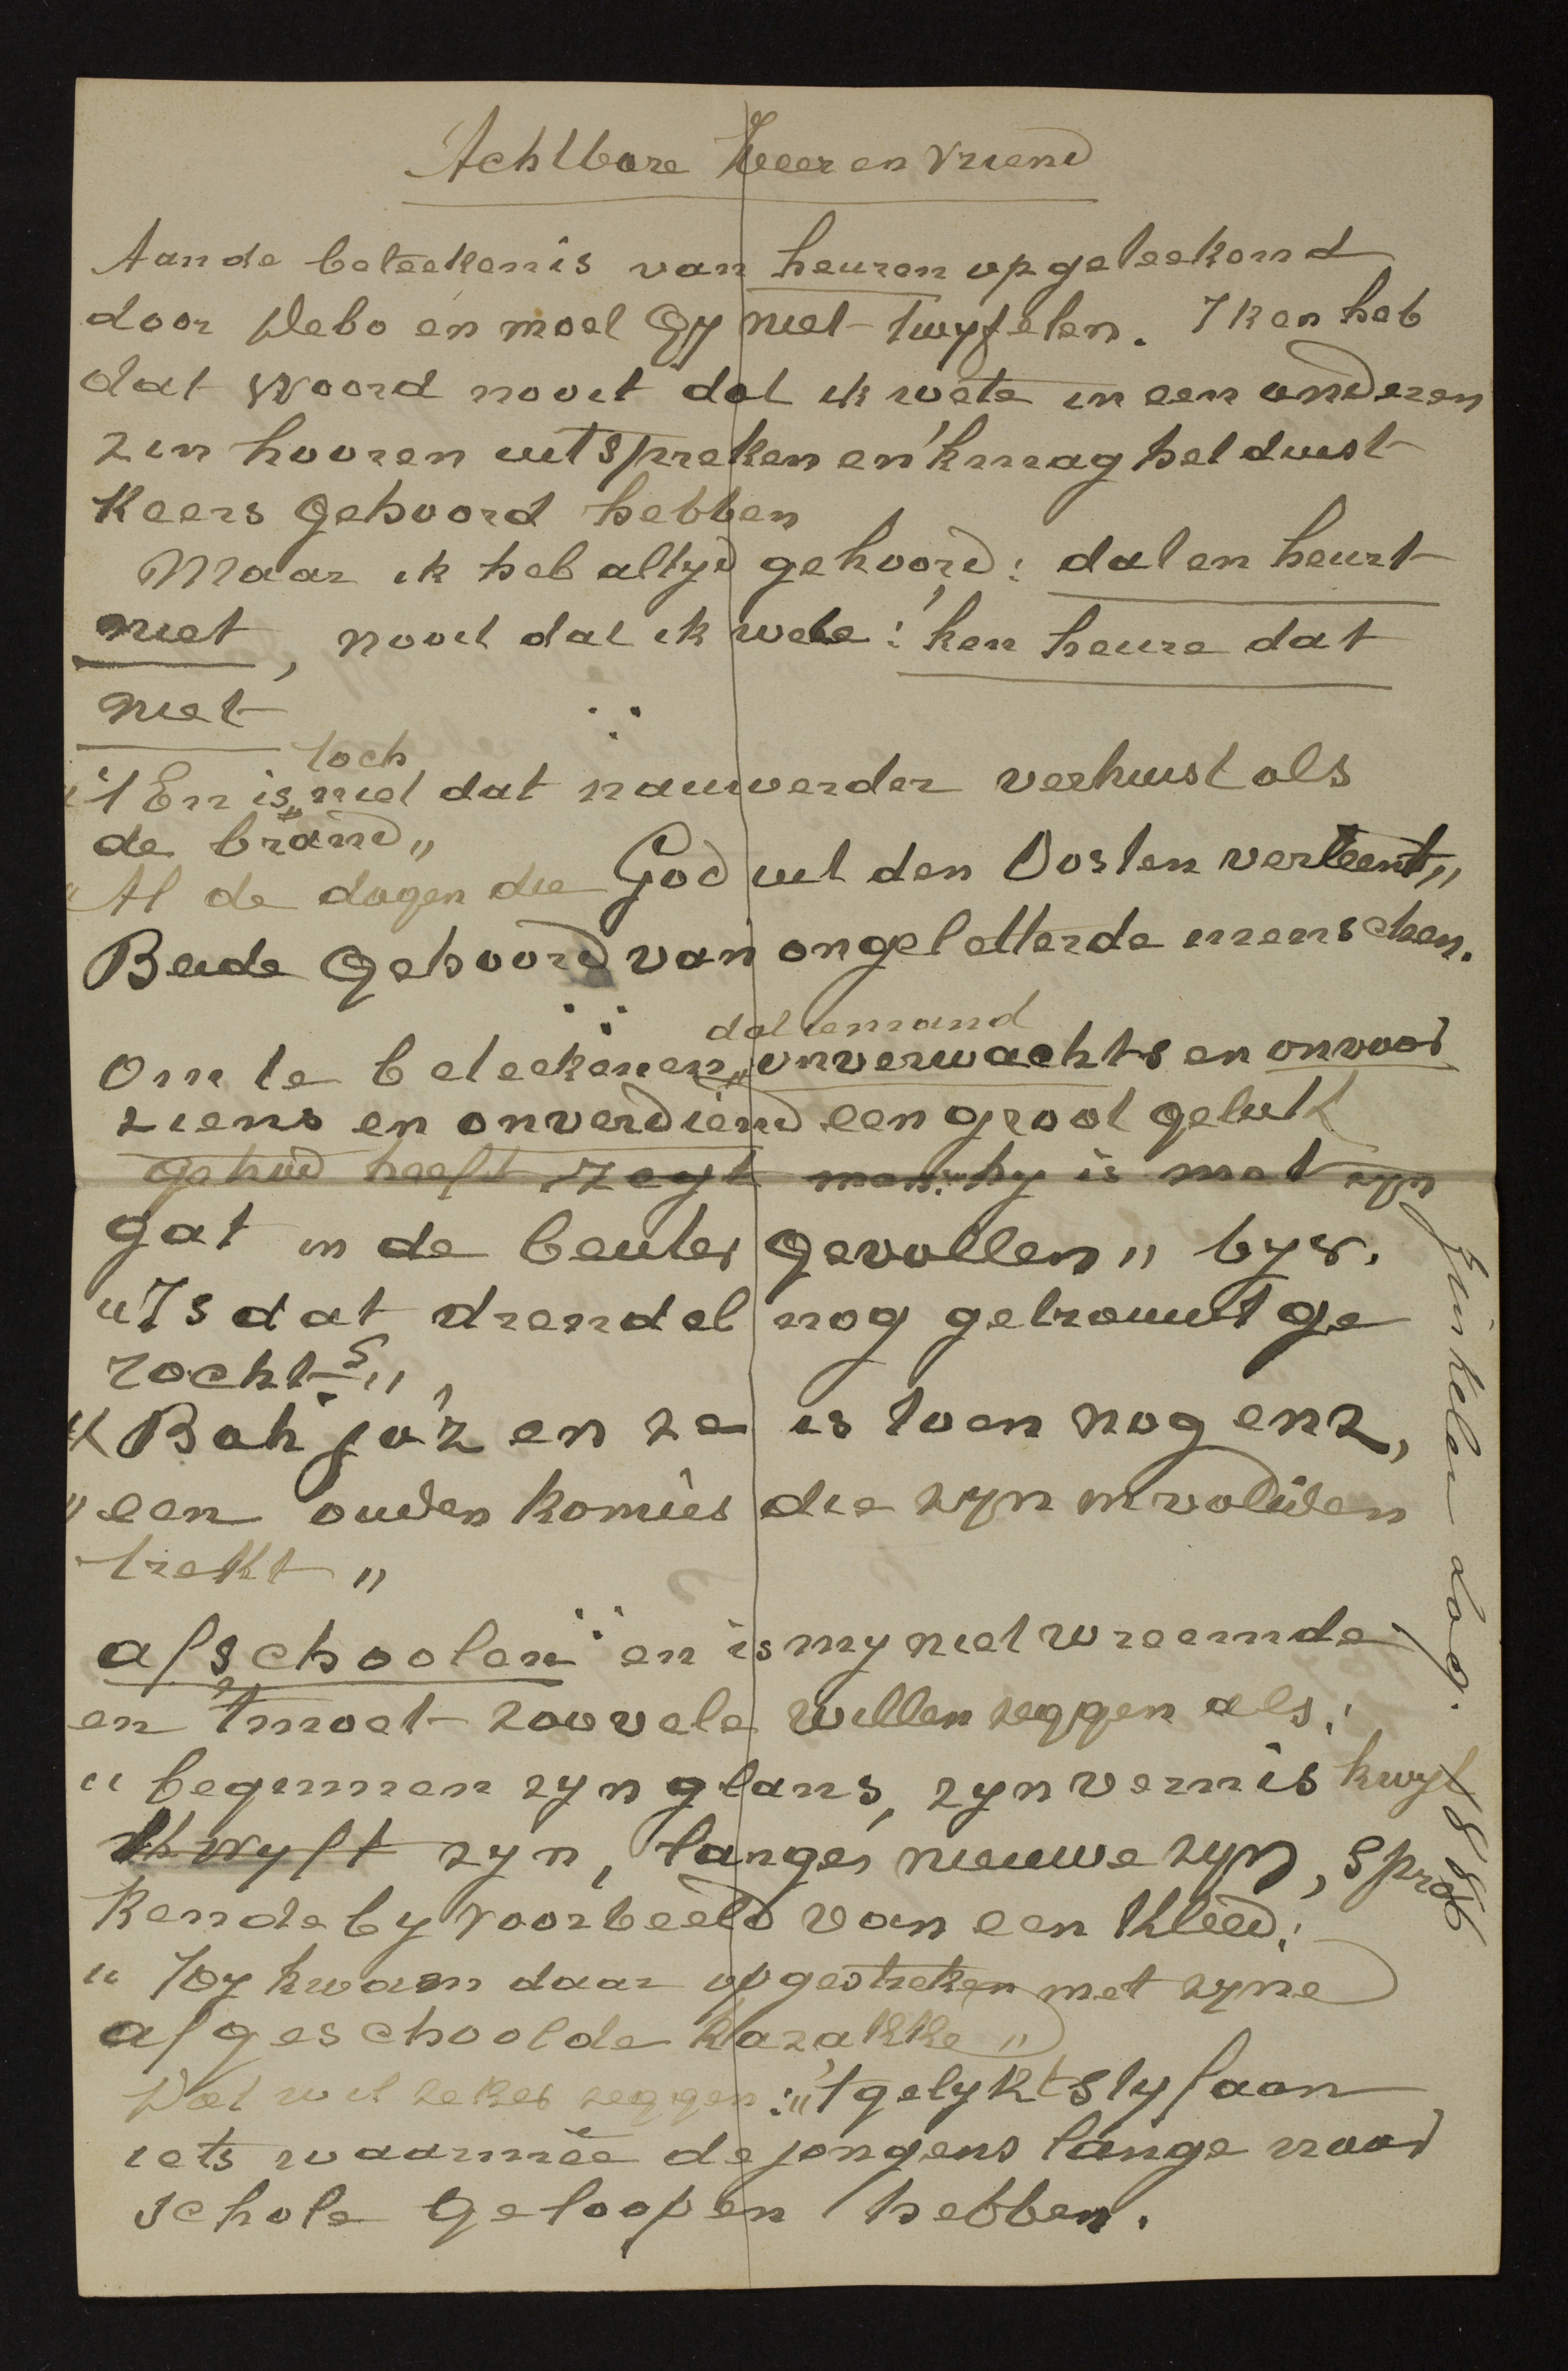 Achtbare Heer en Vriend
Aan de beteekenis van heuren opgeteekend
door Debo en moet Gy niet twyfelen. Ik en heb
dat woord nooit dat ik wete in een anderen
zin hooren uitspreken en 'k mag het duist
keers gehoord hebben
Maar ik heb altyd gehoord: dat en heurt
niet, nooit dat ik wete: 'k en heure dat
niet
toch
"'t En is niet dat nauwerder verhuist als
de brand"
"Al de dagen die God uit den Oosten verleent"
Beide gehoord van ongeletterde menschen.
dat iemand
Om te beteekenen onverwachts en onvoor
ziens en onverdiend een groot geluk
gehad heeft zegt men: "hy is met zyn
gat in de beuter gevallen" byv.
"Is dat drendel nog getrouwt ge
rocht?"
"Bah ja'z en ze is toen nog enz,
"een ouden komies die zyn invaliden
trekt"
afschoolen en is my niet vreemde
en 't moet zoovele willen zeggen als:
"beginnen zyn glans, zyn vernis kwyt
zyn, langer nieuwe zyn, spre
kende by voorbeeld van een kleed:
"Hy kwam daar opgestreken met zyne
afgeschoolde kazakke"
Dat wil zeker zeggen: "'t gelykt styf aan
iets waarmêe de jongens lange naar
schole geloopen hebben.
Sinxelen dag. 1886